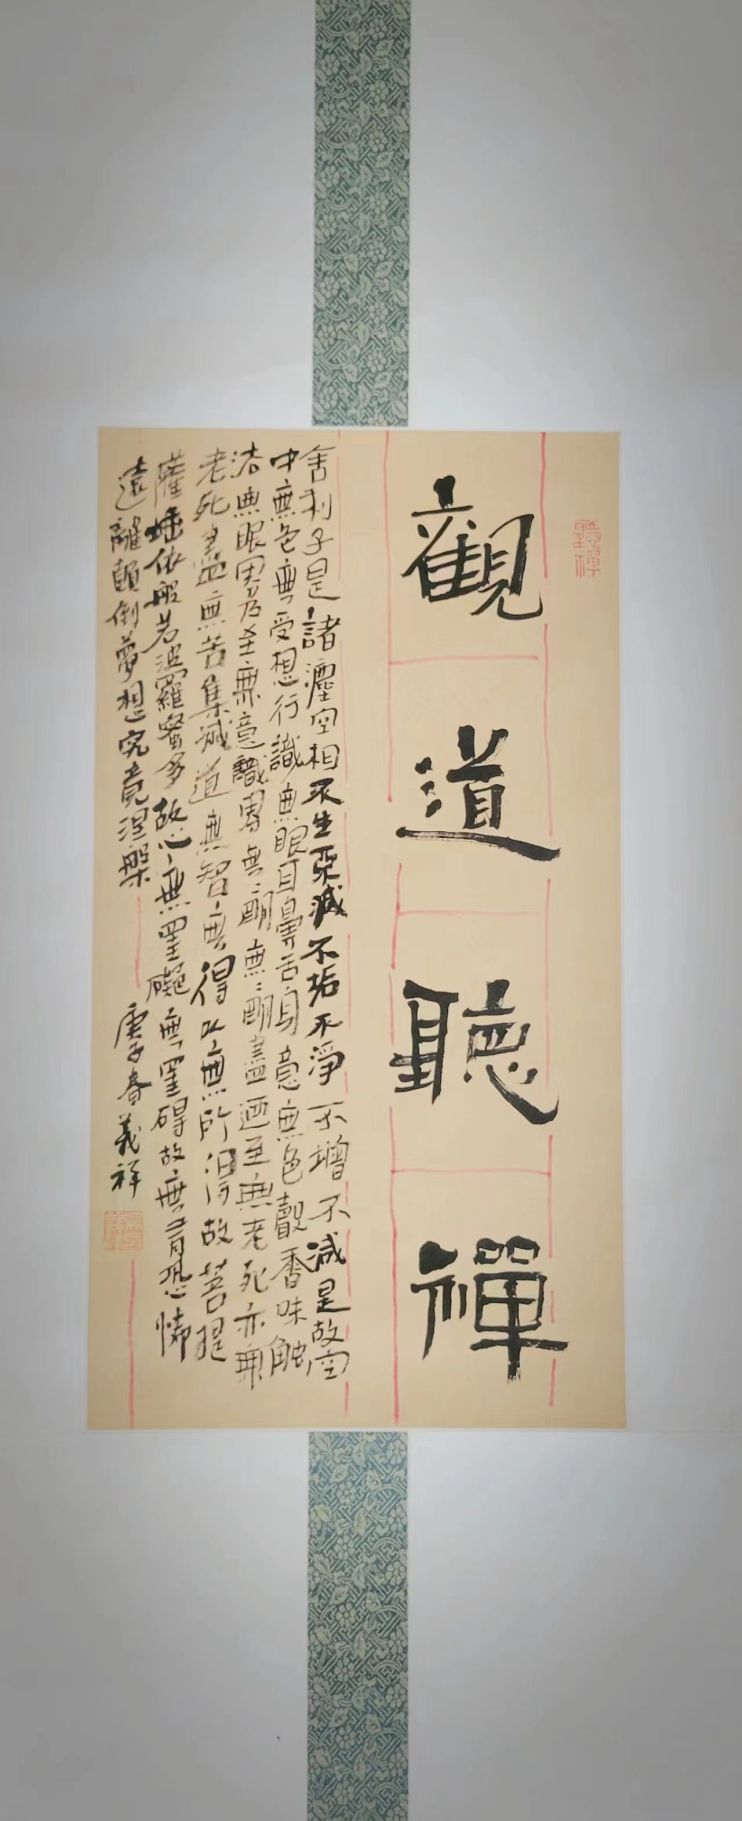 觀道聽禪
聽禪
舍利子是諸灋空相不生不滅不垢不淨不增不減是故空
中無色無受想行識無眼耳鼻舌身意無色聲香味觸
法無眼界乃至無意識界無無明無無明盡迺至無老死亦無
老死盡無苦集滅道無智無得以無所得故菩提
薩埵依般若波羅蜜多故心無罣礙無罣碍故無有恐怖
遠離顛倒夢想究竟涅槃
庚子春義祥